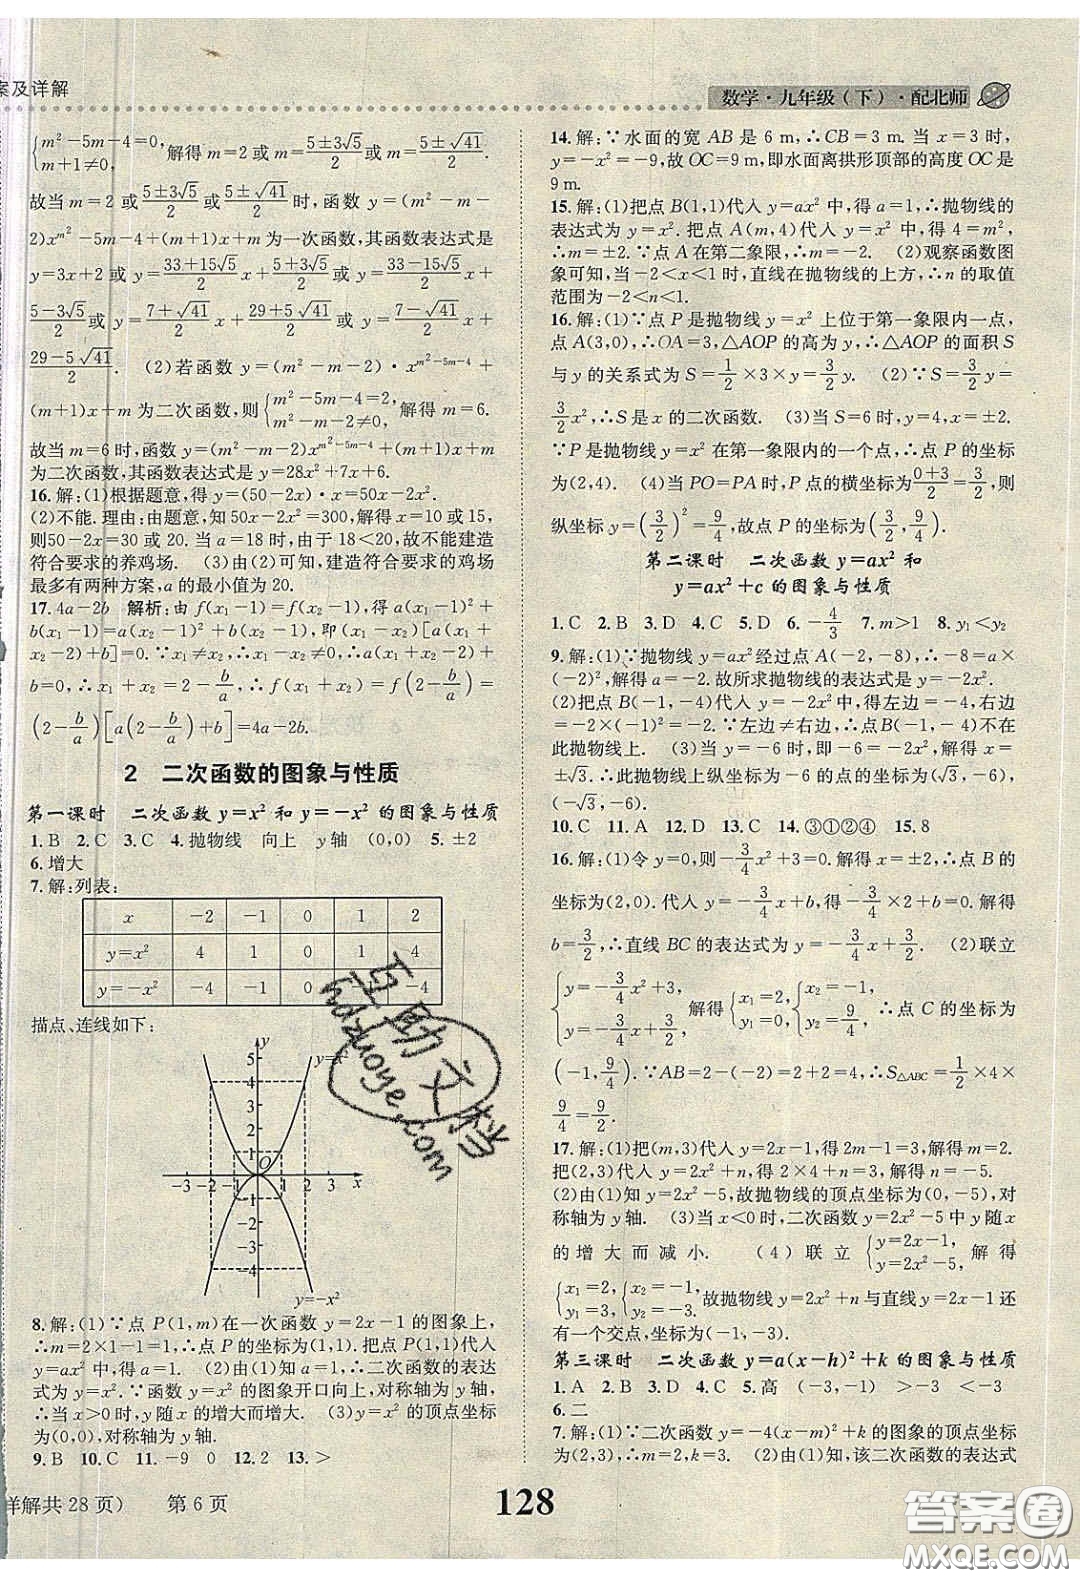 案及详解
数学·九年级(下)·配北师
{m²-5m-4=0, m+1≠0, 解得 m=2 或 m=(5±3√5)/2 或 m=(5±√41)/2.
故当 m=2 或 (5±3√5)/2 或 (5±√41)/2 时,函数 y=(m²-m-
2)x^(m²-5m-4)+(m+1)x+m 为一次函数,其函数表达式是
y=3x+2 或 y=(33+15√5)/2 x+(5+3√5)/2 或 y=(33-15√5)/2 x+
(5-3√5)/2 或 y=(7+√41)/2 x+(29+5√41)/2 或 y=(7-√41)/2 x+
(29-5√41)/2. (2)若函数 y=(m²-m-2)·x^(m²-5m-4)+
(m+1)x+m 为二次函数,则{m²-5m-4=2, m²-m-2≠0, 解得 m=6.
故当 m=6 时,函数 y=(m²-m-2)x^(m²-5m-4)+(m+1)x+m
为二次函数,其函数表达式是 y=28x²+7x+6.
16.解:(1)根据题意,得 y=(50-2x)·x=50x-2x².
(2)不能.理由:由题意,知 50x-2x²=300,解得 x=10 或 15,
则50-2x=30 或 20.当 a=18 时,由于 18<20,故不能建造
符合要求的养鸡场. (3)由(2)可知,建造符合要求的鸡场
最多有两种方案,a 的最小值为 20.
17.4a-2b 解析:由 f(x₁-1)=f(x₂-1),得 a(x₁-1)²+
b(x₁-1)=a(x₂-1)²+b(x₂-1),即(x₁-x₂)[a(x₁+
x₂-2)+b]=0.∵x₁≠x₂,∴x₁-x₂≠0,∴a(x₁+x₂-2)+
b=0,∴x₁+x₂=2-b/a,∴f(x₁+x₂)=f(2-b/a)=
(2-b/a)[a(2-b/a)+b]=4a-2b.
2 二次函数的图象与性质
第一课时 二次函数 y=x² 和 y=-x² 的图象与性质
1.B 2.C 3.C 4.抛物线 向上 y轴 (0,0) 5.±2
6.增大
7.解:列表:
x -2 -1 0 1 2
y=x² 4 1 0 1 4
y=-x² -4 -1 0 -4
描点、连线如下:
y
y=x²
5
4
3
2
1
O
-3 -2 -1 1 2 3 x
-1
-2
-3
-4
y=-x²
8.解:(1)∵点 P(1,m)在一次函数 y=2x-1 的图象上,
∴m=2×1-1=1,∴点 P 的坐标为(1,1).把点 P(1,1)代入
y=ax² 中,得 a=1. (2)由(1)知 a=1,∴二次函数的表达
式为 y=x².∵函数 y=x² 的图象开口向上,对称轴为 y 轴,
∴当 x>0 时,y 随 x 的增大而增大. (3)y=x² 的顶点坐标
为(0,0),对称轴为 y 轴.
9.B 10.C 11.-9 0 12.2 13.>
14.解:∵水面的宽 AB 是 6 m,∴CB=3 m.当 x=3 时,
y=-x²=-9,故 OC=9 m,即水面离拱形顶部的高度 OC 是
9 m.
15.解:(1)把点 B(1,1)代入 y=ax² 中,得 a=1,∴抛物线的
表达式为 y=x².把点 A(m,4)代入 y=x² 中,得 4=m²,
∴m=±2.∵点 A 在第二象限,∴m=-2. (2)观察函数图
象可知,当-2<x<1 时,直线在抛物线的上方,∴n 的取值
范围为-2<n<1.
16.解:(1)∵点 P 是抛物线 y=x² 上位于第一象限内一点,
点 A(3,0),∴OA=3,△AOP 的高为 y,∴△AOP 的面积 S
与 y 的关系式为 S=1/2×3×y=3/2 y. (2)∵S=3/2 y=
3/2 x²,∴S 是 x 的二次函数. (3)当 S=6 时,y=4,x=±2.
∵P 是抛物线 y=x² 在第一象限内的一个点,∴点 P 的坐标
为(2,4). (4)当 PO=PA 时,P 点的横坐标为 (0+3)/2=3/2,则
纵坐标 y=(3/2)²=9/4,故点 P 的坐标为(3/2,9/4).
第二课时 二次函数 y=ax² 和
y=ax²+c 的图象与性质
1.C 2.B 3.D 4.C 5.D 6.-4/3 7.m>1 8.y₁<y₂
9.解:(1)∵抛物线 y=ax² 经过点 A(-2,-8),∴-8=a×
(-2)²,解得 a=-2.故所求抛物线的表达式为 y=-2x².
(2)把点 B(-1,-4)代入 y=-2x²,得左边=-4,右边
=-2×(-1)²=-2.∵左边≠右边,∴点 B(-1,-4)不在
此抛物线上. (3)把 y=-6 代入 y=-2x²,得-6=-2x²,x=
±√3.∴此抛物线上纵坐标为-6 的点的坐标为(√3,-6),
(-√3,-6).
10.C 11.A 12.D 13.C 14.③①②④ 15.8
16.解:(1)令 y=0,则-3/4x²+3=0.解得 x=±2,∴点 B 的
坐标为(2,0).代入 y=-3/4x+b,得-3/4×2+b=0.解得
b=3/2,∴直线 BC 的表达式为 y=-3/4x+3/2. (2)联立
{y=-3/4x²+3, y=-3/4x+3/2, 解得{x₁=2, y₁=0, {x₂=-1, y₂=9/4, ∴点 C 的坐标为
(-1,9/4).∵AB=2-(-2)=2+2=4,∴S△ABC=1/2×4×
9/4=9/2.
17.解:(1)把(m,3)代入 y=2x-1,得 2m-1=3,解得 m=2.
把(2,3)代入 y=2x²+n,得 2×4+n=3,解得 n=-5.
(2)由(1)知 y=2x²-5,故抛物线的顶点坐标为(0,-5),对
称轴为 y 轴. (3)当 x<0 时,二次函数 y=2x²-5 中 y 随 x
的增大而减小. (4)联立{y=2x-1, y=2x²-5, 解得
{x₁=2, y₁=3, {x₂=-1, y₂=-3, 故抛物线 y=2x²+n 与直线 y=2x-1 还
有一个交点,坐标为(-1,-3).
第三课时 二次函数 y=a(x-h)²+k 的图象与性质
1.A 2.B 3.D 4.C 5.高 (-3,-1) >-3 <-3
6.二
7.解:(1)∵二次函数 y=-4(x-m)²+k 的图象的顶点坐标
为(2,5),∴m=2,k=5. (2)由(1)知,该二次函数的表达式
详解共 28 页) 第 6 页
128
互助文档
hdzuoye.com
答案圈
MXQE.COM